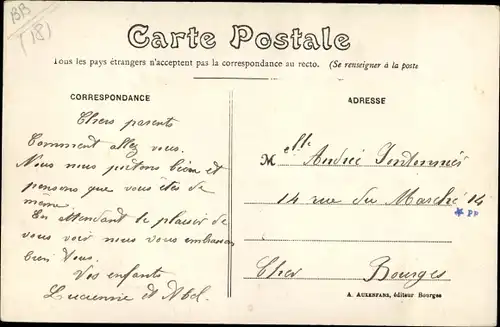 BB
(18)
Carte Postale
Tous les pays étrangers n'acceptent pas la correspondance au recto. (Se renseigner à la poste
CORRESPONDANCE
ADRESSE
Chers parents
Comment allez vous.
Nous nous portons bien et
pensons que vous êtes de
même.
En attendant le plaisir de
vous voir nous vous embrassons
bien Vous.
Vos enfants
Lucienne et Abel.
Melle Andrée
14 rue du Marché 14
* PP
Cher Bourges
A. AUXENFANS, éditeur Bourges